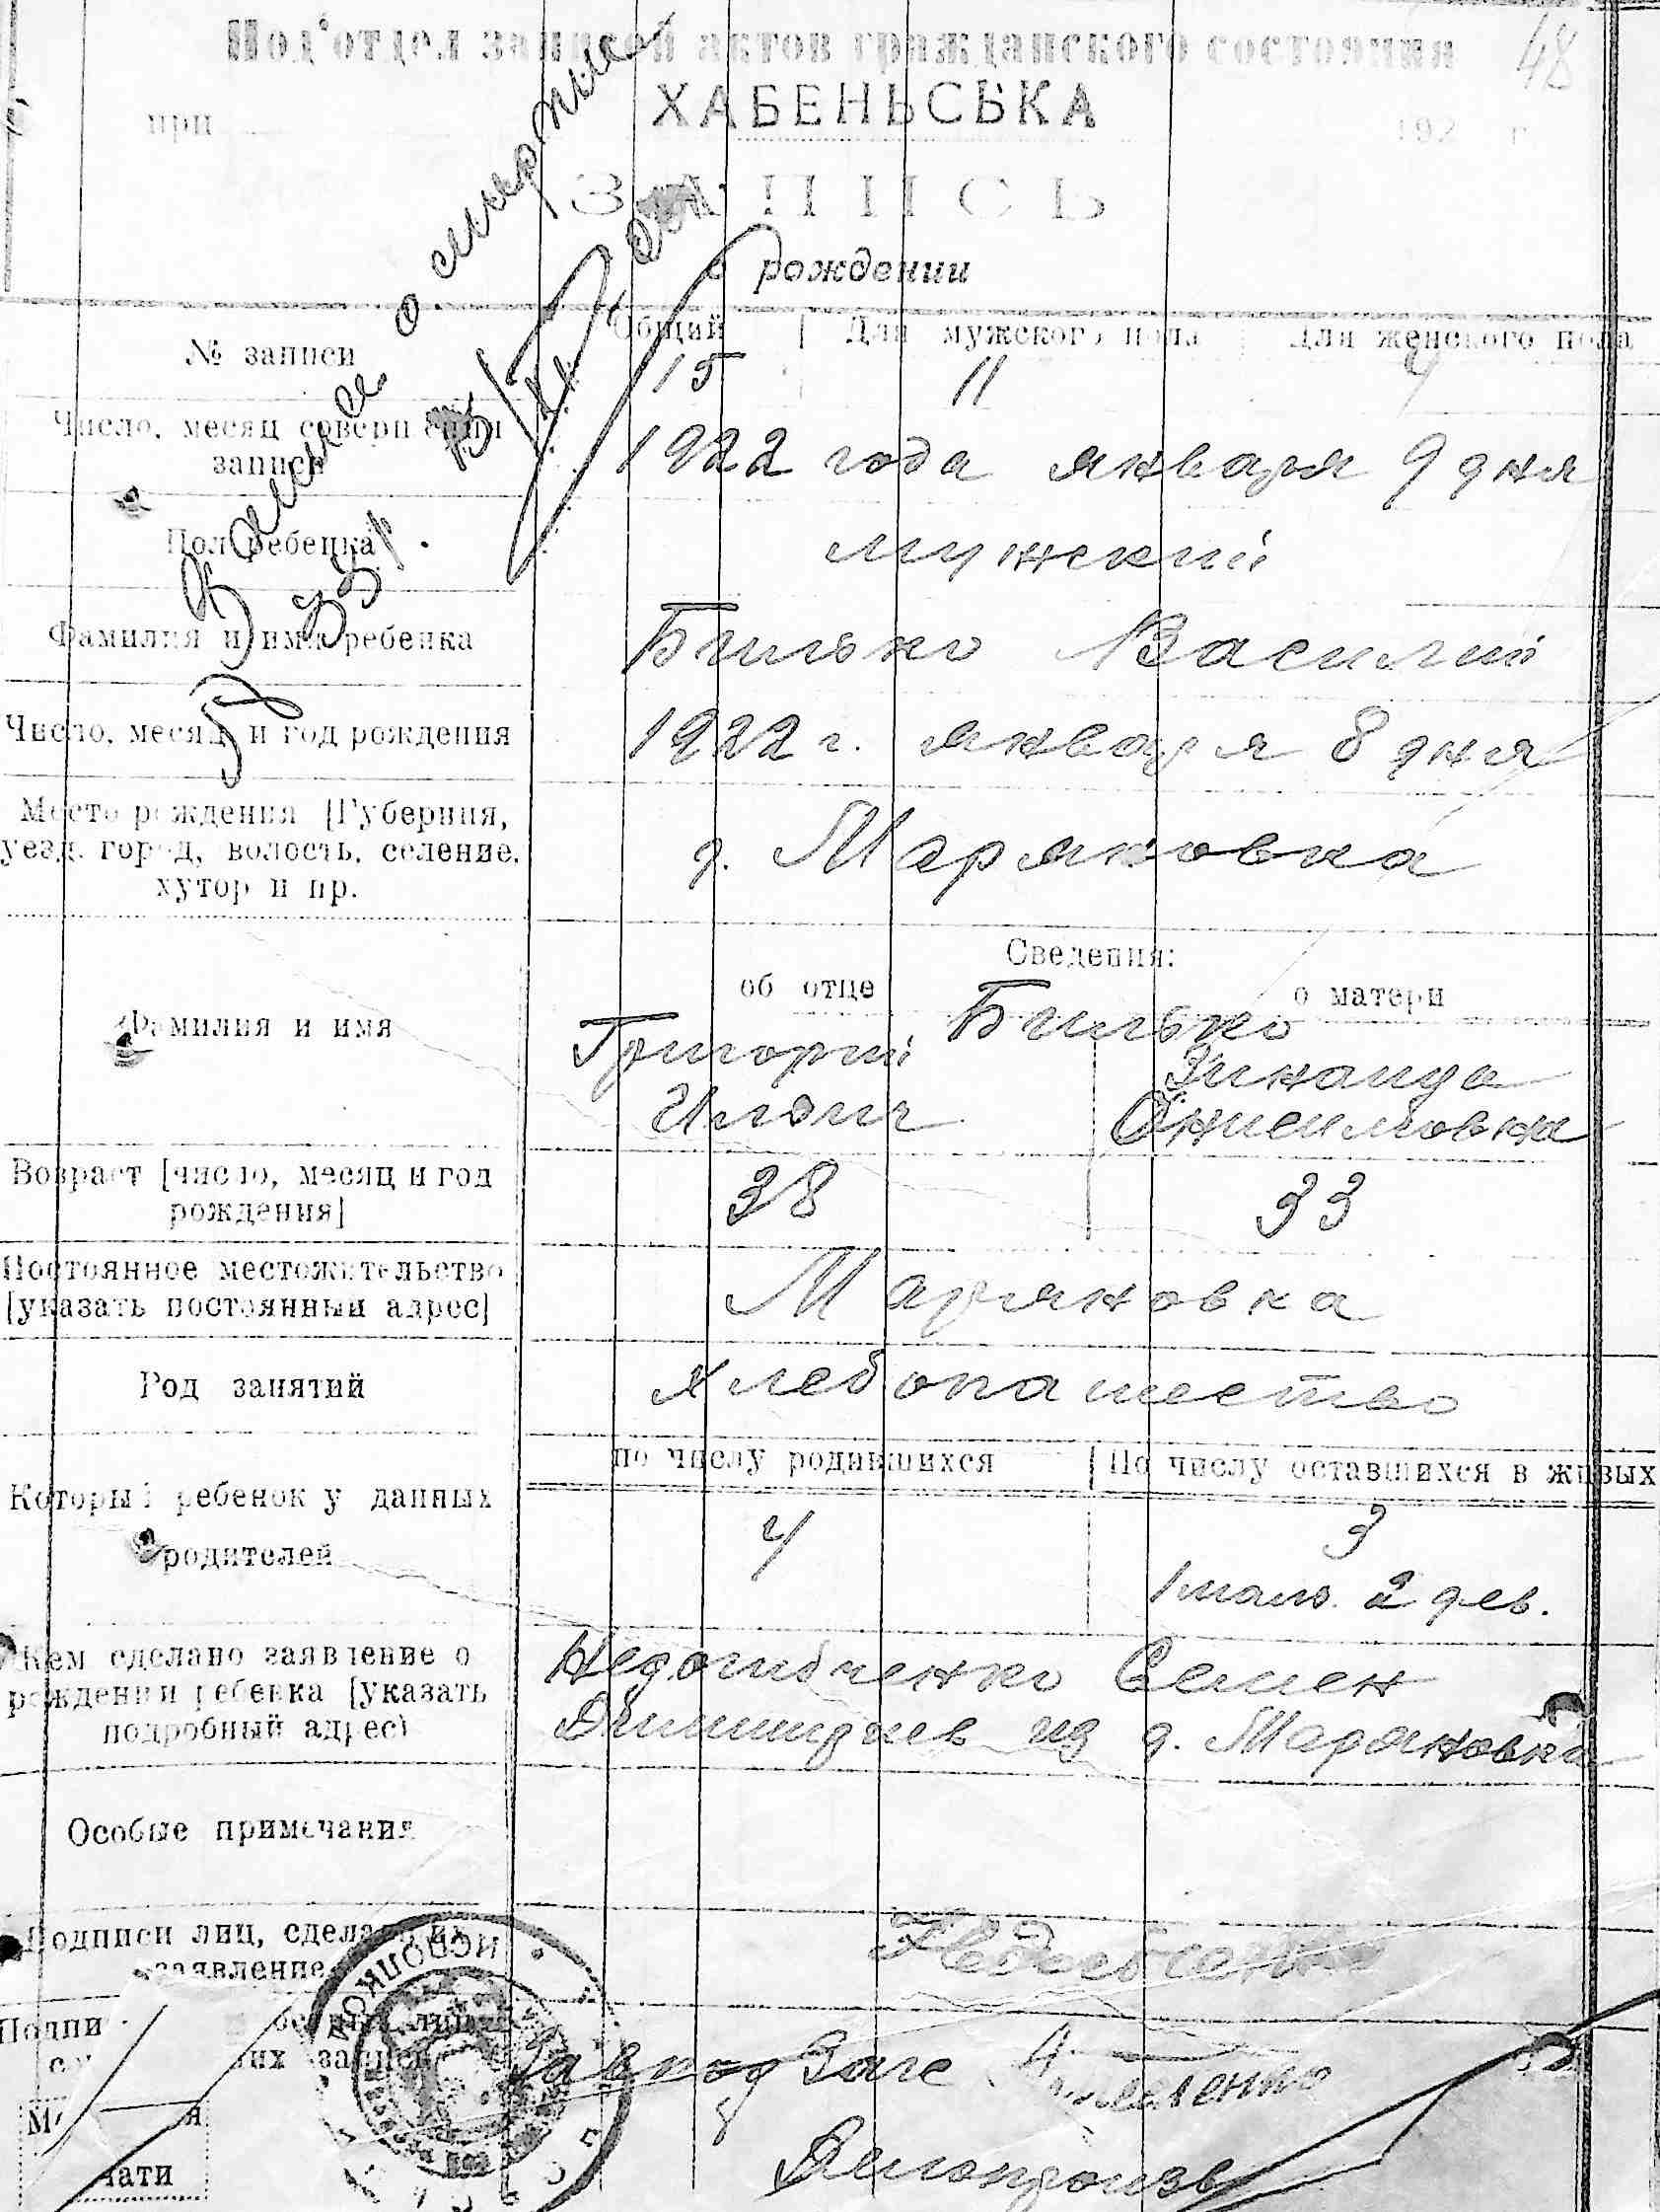 Под'отдел записей актов гражданского состояния
48
ХАБЕНЬСЬКА
при 192 г.
ЗАПИСЬ
о рождении
о смерти
Общий Для мужского пола Для женского пола
№ записи 15 11
Число, месяц совершения
записи
1922 года января 9 дня
Пол ребенка мужский
Фамилия и имя ребенка Билько Василий
Число, месяц и год рождения 1922 г. января 8 дня
Место рождения [Губерния,
уезд, город, волость, селение,
хутор и пр.
д. Маряновка
Сведения:
об отце о матери
Фамилия и имя
Билько
Григорий Зинаида
Ильич Онисимовна
Возраст [число, месяц и год
рождения]
38 33
Постоянное местожительство
[указать постоянный адрес]
Маряновка
Род занятий хлебопашество
по числу родившихся По числу оставшихся в живых
Который ребенок у данных
родителей
4 3
1 мальч. 2 дев.
Кем сделано заявление о
рождении ребенка [указать
подробный адрес)
Семен
из д. Маряновка
Особые примечания
Подписи лиц, сделавших
заявление
Завпод Загс
Делопроизв
ИСПОЛКОМ